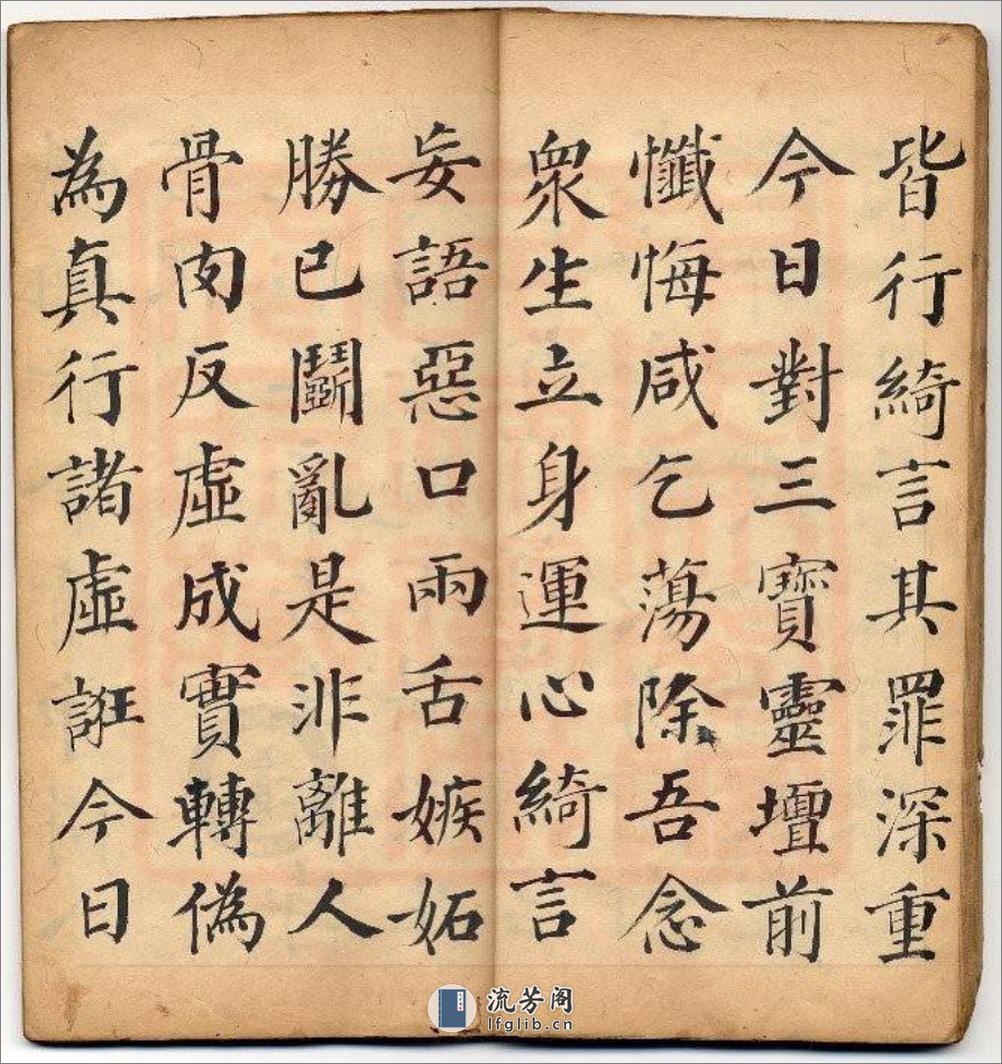 皆行綺言其罪深重
今日對三寶靈壇前
懺悔咸乞蕩除吾念
衆生立身運心綺言
妄語惡口兩舌嫉妬
勝已鬭亂是非離人
骨肉反虛成實轉偽
為真行諸虛誑今日
流芳阁
lfglib.cn